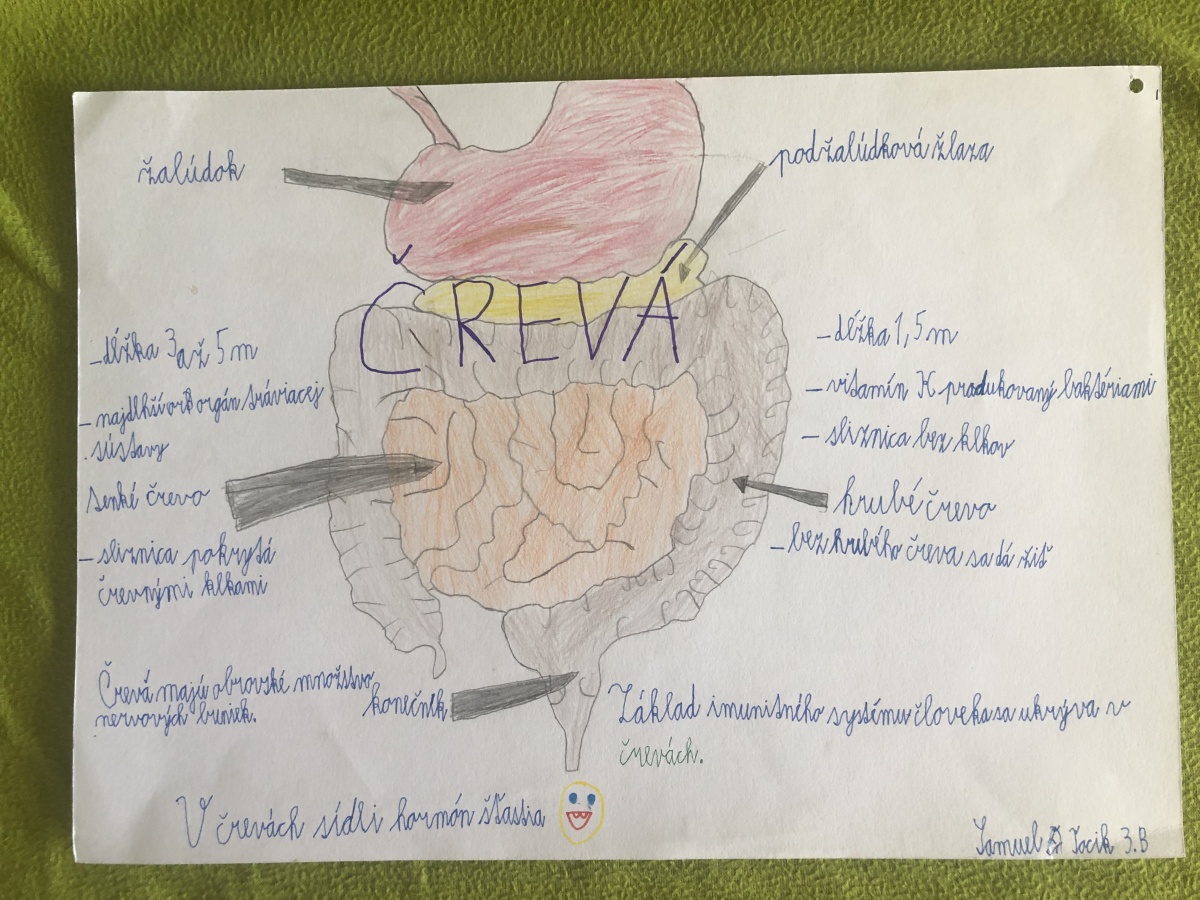 žalúdok
podžalúdková žlaza
ČREVÁ
-dĺžka 3 až 5 m
-najdlhší orgán tráviacej
sústavy
tenké črevo
-sliznica pokrytá
črevnými klkami
-dĺžka 1,5 m
-vitamín K produkovaný baktériami
-sliznica bez klkov
hrubé črevo
-bez hrubého čreva sa dá žiť
Črevá majú obrovské množstvo
nervových buniek.
konečník
Základ imunitného systému človeka sa ukrýva v
črevách.
V črevách sídli hormón šťastia
Samuel 3.B